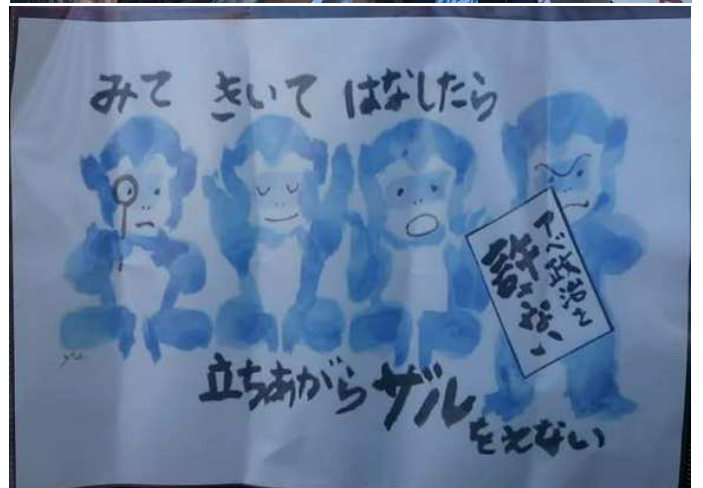 みて きいて はなしたら
アベ政治を
許さない
立ちあがらザル
をえない